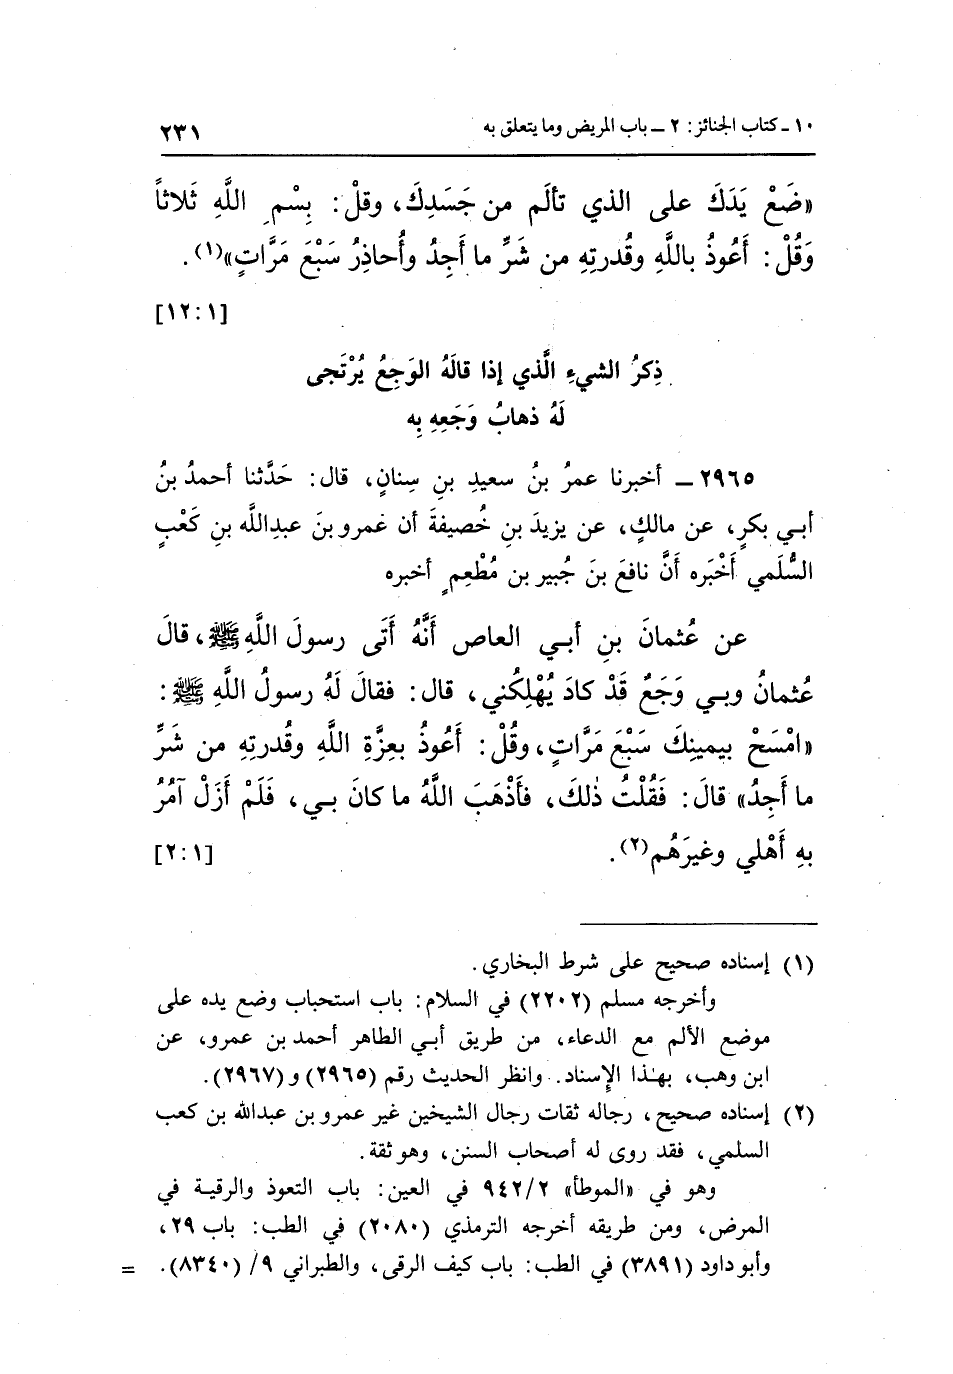 ١٠ ـ كتاب الجنائز: ٢ ـ باب المريض وما يتعلق به ٢٣١
«ضَعْ يَدَكَ على الذي تألَم من جَسَدِكَ، وقلْ: بِسْمِ اللَّهِ ثَلاثاً
وَقُلْ: أَعُوذُ باللَّهِ وقُدرتِهِ من شَرِّ ما أَجِدُ وأُحاذِرُ سَبْعَ مَرَّاتٍ»(١).
[١٢:١]
ذِكرُ الشيءِ الَّذي إذا قالَهُ الوَجِعُ يُرْتَجى
لَهُ ذهابُ وَجَعِهِ بِه
٢٩٦٥ ـ أخبرنا عمرُ بنُ سعيدِ بنِ سِنانٍ، قال: حَدَّثنا أحمدُ بنُ
أبي بكرٍ، عن مالكٍ، عن يزيدَ بنِ خُصيفةَ أن عَمرو بنَ عبدِالله بنِ كَعْبٍ
السُّلَمي أَخْبَره أَنَّ نافعَ بنَ جُبير بن مُطْعِمٍ أخبره
عن عُثمانَ بنِ أبي العاص أَنَّهُ أَتَى رسولَ اللَّهِ ﷺ، قالَ
عُثمانُ وبي وَجَعٌ قَدْ كادَ يُهْلِكُني، قال: فقالَ لَهُ رسولُ اللَّهِ ﷺ:
«امْسَحْ بيمينِكَ سَبْعَ مَرَّاتٍ، وقُلْ: أَعُوذُ بعِزَّةِ اللَّهِ وقُدرتِهِ من شَرِّ
ما أَجِدُ» قالَ: فَقُلْتُ ذٰلكَ، فأَذْهَبَ اللَّهُ ما كانَ بي، فَلَمْ أَزَلْ آمُرُ
بهِ أَهْلي وغيرَهُم(٢). [٢:١]
(١) إسناده صحيح على شرط البخاري.
وأخرجه مسلم (٢٢٠٢) في السلام: باب استحباب وضع يده على
موضع الألم مع الدعاء، من طريق أبي الطاهر أحمد بن عمرو، عن
ابن وهب، بهٰذا الإسناد. وانظر الحديث رقم (٢٩٦٥) و(٢٩٦٧).
(٢) إسناده صحيح، رجاله ثقات رجال الشيخين غير عمرو بن عبدالله بن كعب
السلمي، فقد روى له أصحاب السنن، وهو ثقة.
وهو في «الموطأ» ٩٤٢/٢ في العين: باب التعوذ والرقية في
المرض، ومن طريقه أخرجه الترمذي (٢٠٨٠) في الطب: باب ٢٩،
وأبو داود (٣٨٩١) في الطب: باب كيف الرقى، والطبراني ٩/ (٨٣٤٠). =